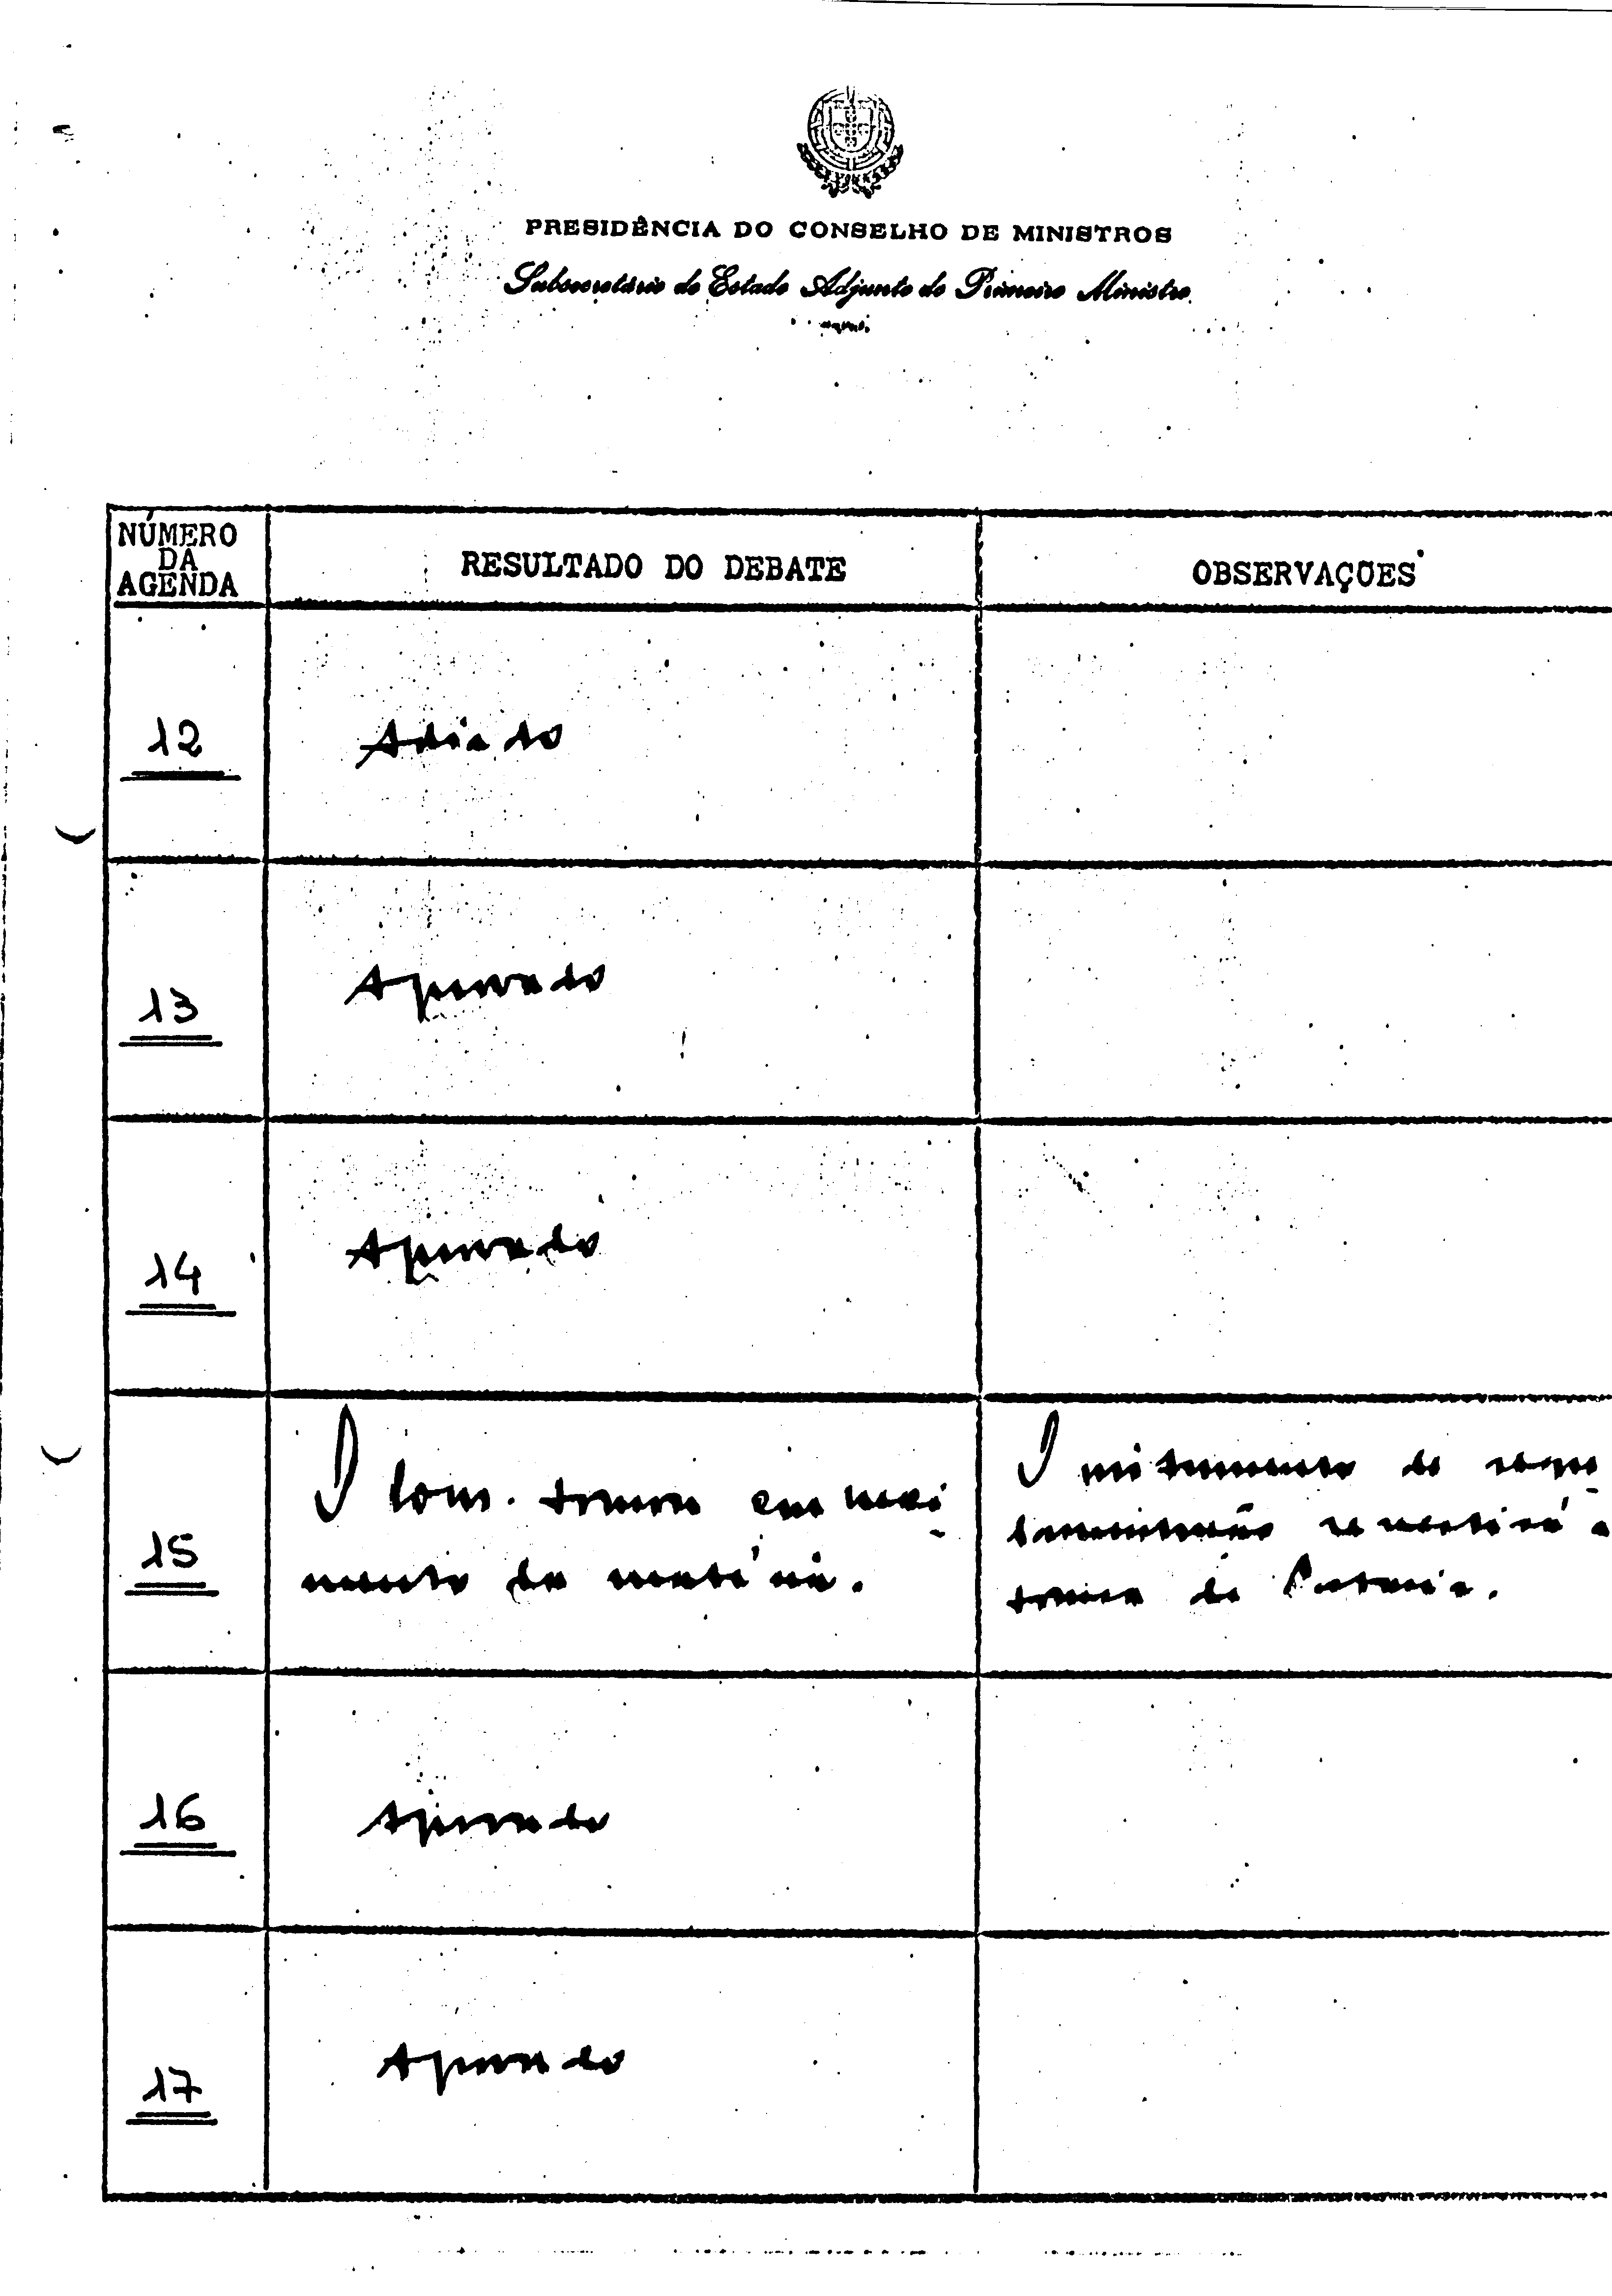 PRESIDÊNCIA DO CONSELHO DE MINISTROS
Subsecretário de Estado Adjunto do Primeiro Ministro
NÚMERO
DA
AGENDA
RESULTADO DO DEBATE
OBSERVAÇÕES
12
Adiado
13
Aprovado
14
Aprovado
15
O Cons. tomou conheci
mento da matéria.
O
de
de
16
Aprovado
17
Aprovado